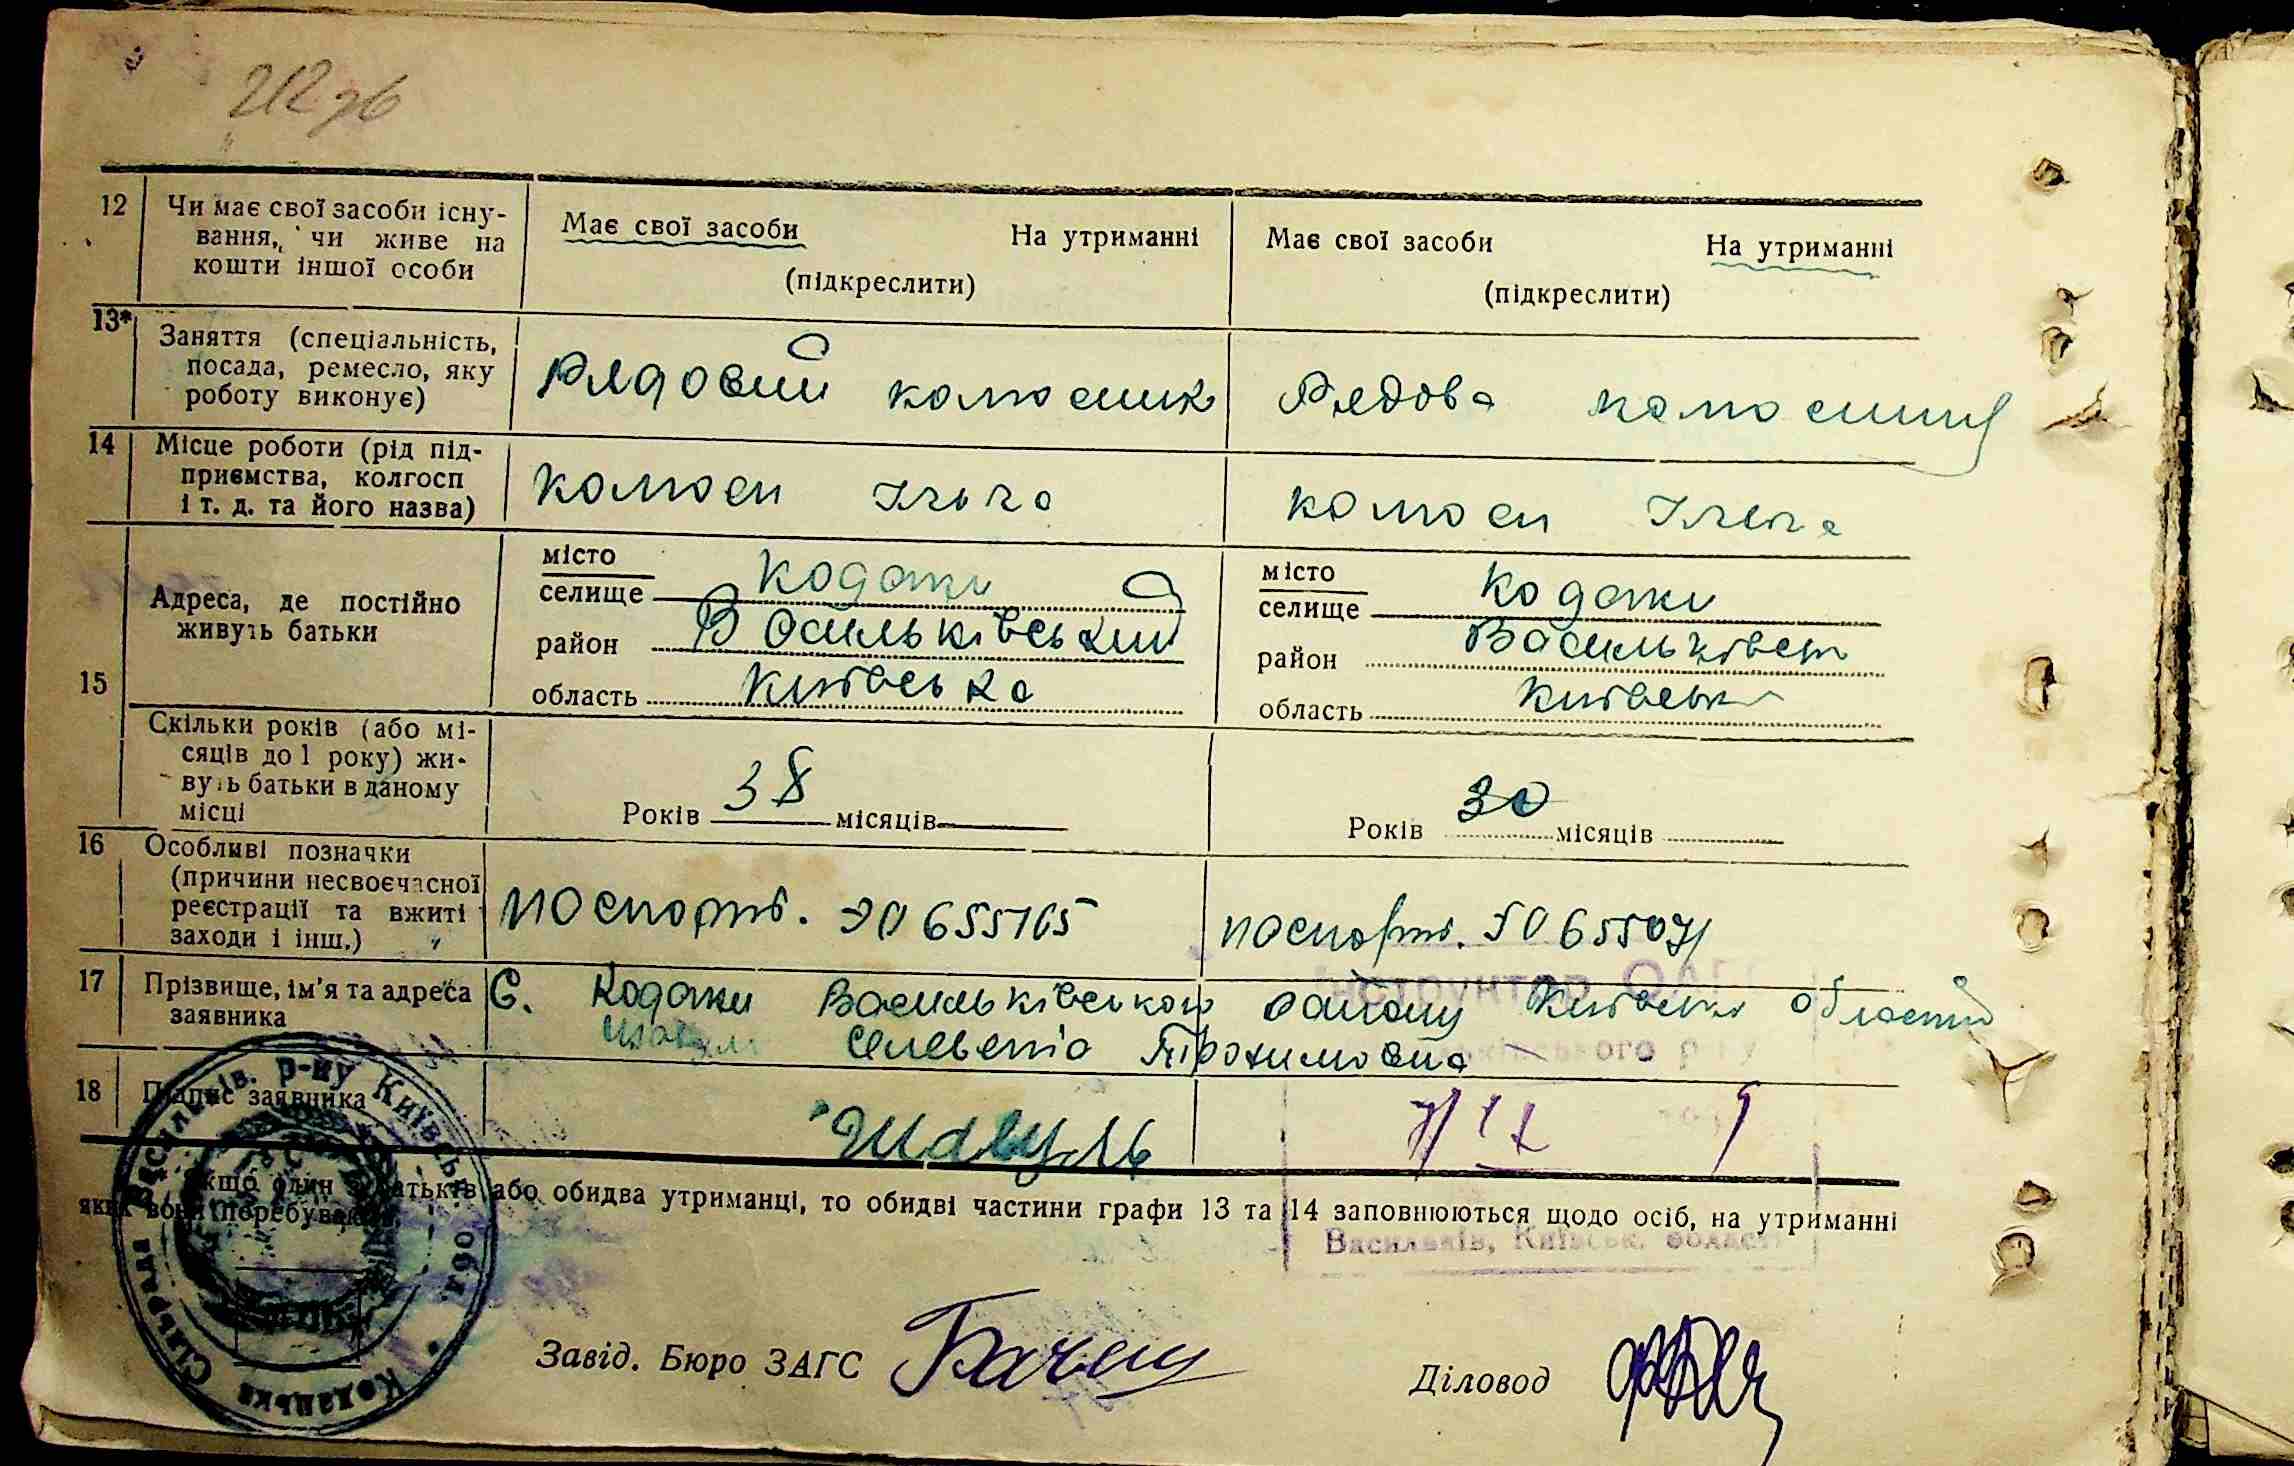 212 зв
12 Чи має свої засоби існу-
вання, чи живе на
кошти іншої особи
Має свої засоби На утриманні
(підкреслити)
Має свої засоби На утриманні
(підкреслити)
13* Заняття (спеціальність,
посада, ремесло, яку
роботу виконує)
Рядовий колгоспник
Рядова
14 Місце роботи (рід під-
приємства, колгосп
і т. д. та його назва)
колгосп Ілліча
колгосп Ілліча
15
Адреса, де постійно
живуть батьки
місто
селище Кодаки
район Васильківський
область Київська
місто
селище Кодаки
район
область Київська
Скільки років (або мі-
сяців до 1 року) жи-
вуть батьки в даному
місці
Років 38 місяців
Років 30 місяців
16 Особливі позначки
(причини несвоєчасної
реєстрації та вжиті
заходи і інш.)
паспорт. 655165
паспорт.
17 Прізвище, ім'я та адреса
заявника
С. Кодаки Васильківського району Київської області
Шавуль Трохимовна
18 Підпис заявника
Шавуль
Якщо один з батьків або обидва утриманці, то обидві частини графи 13 та 14 заповнюються щодо осіб, на утриманні
яких вони перебувають.
Васильків, Київськ. області
Завід. Бюро ЗАГС
Діловод
Кодацька Сільрада Васильків. р-ну Київськ. обл.